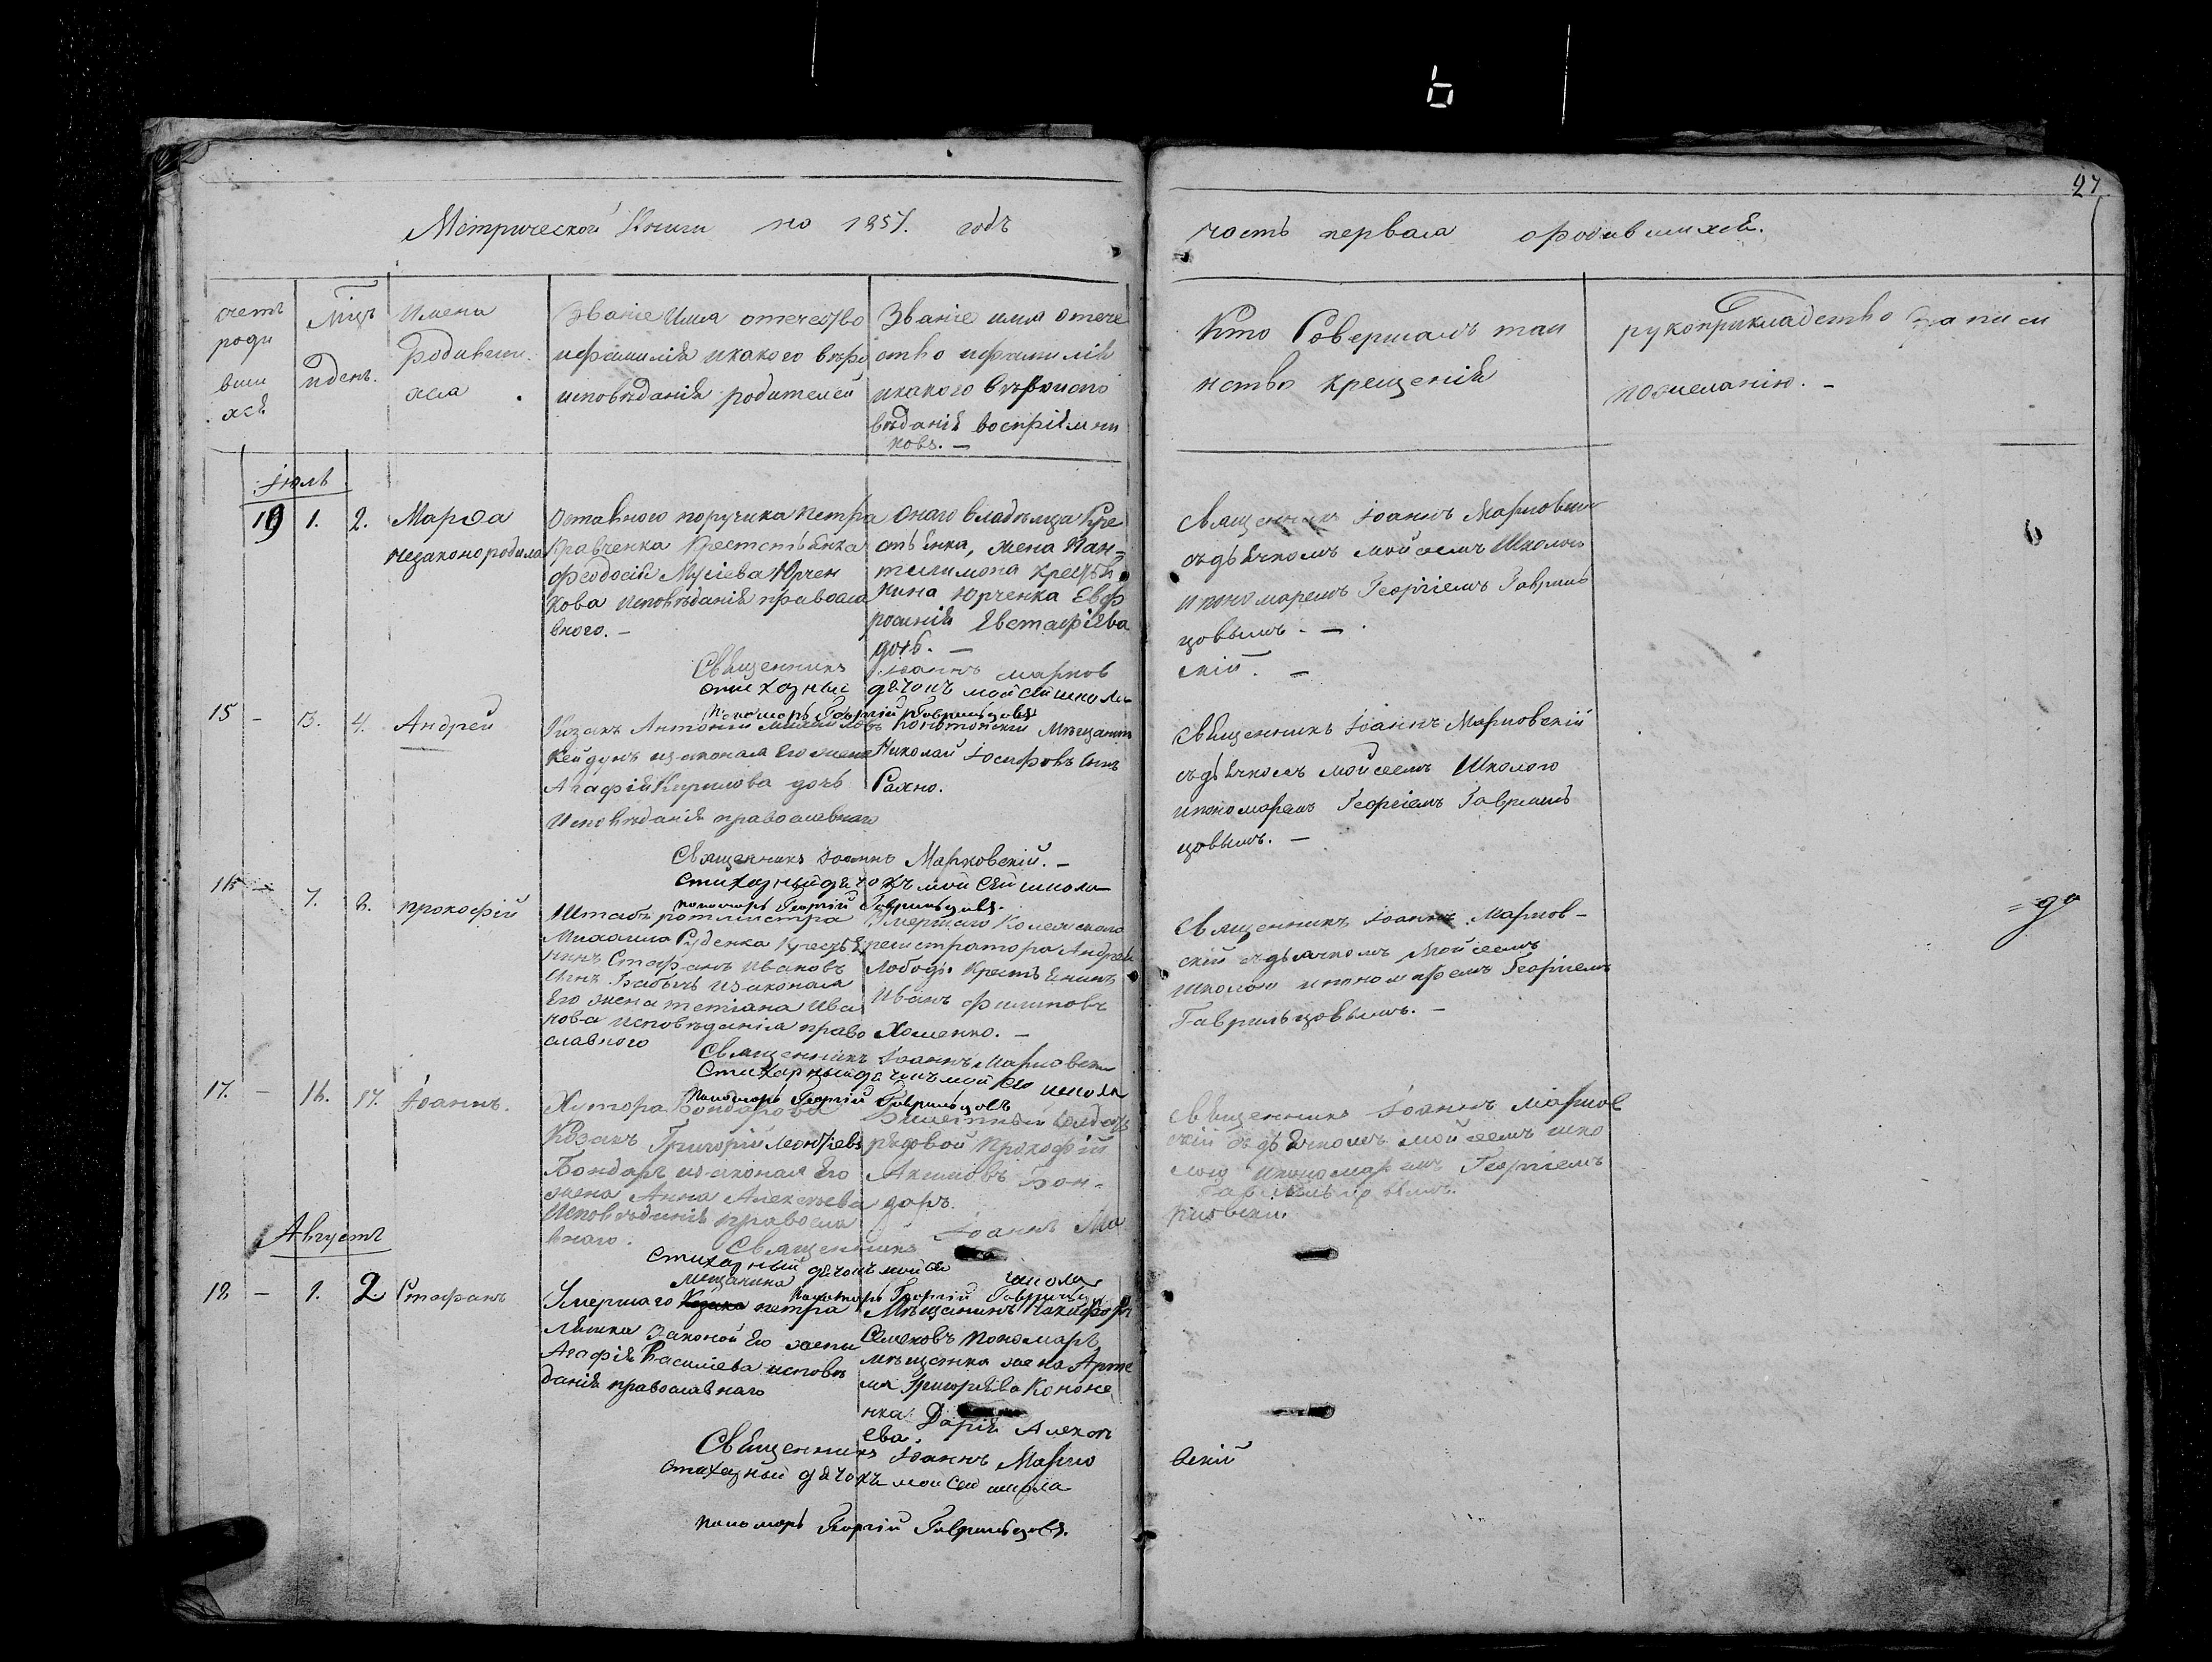 27
Метрической Книги на 1857. годъ
часть первая ородившихся.
счетъ роди вши хся
Мцъ иденъ.
Имена Родивши хся
Званіе Имя отечество ифамилія икакого вѣро исповѣданія родителей
Званіе имя отече ство ифамилія икакого вѣроиспо вѣданія воспріемни ковъ. —
Кто Совершалъ таи нство крещенія
рукоприкладство записи
пожеланію. —
Іюль
19 1. 2. Марѳа незаконородила
Оставного поручика Петра
Кравченка Крестьянка
Феодосія Мусіева Юрчен
кова исповѣданія правосла
вного. —
Онаго владѣльца Кре
стьянка, жена Пан-
телимона Крестья
нина Юрченка Евф
росинія Евстафіева
дочь. —
Священникъ Іоаннъ Марковскій
съдьячкомъ Мойсеемъ Школою
ипономаремъ Георгіемъ Гаврильцовымъ. —
Священникъ Іоаннъ Марков
скій. —
Стихарный дячокъ Мойсей школа
Пономарь Георгій Гаврильцовъ
15 — 3. 4. Андрей
Козакъ Антоній Михайловъ
Кейдунъ изаконая Его жена
Агафія Кирилова дочь
Исповѣданія православнаго
Конотопскій Мѣщанинъ
Николай Іосифовъ сынъ
Рахно.
Священникъ Іоаннъ Марковскій
съдьячкомъ Мойсеемъ Школою
ипономаремъ Георгіемъ Гавриль
цовымъ. —
Священникъ Іоаннъ Марковскій. —
Стихарный дячокъ Мойсей школа
пономарь Георгій Гаврильцовъ.
16 — 7. 8. прокофій
Штабъ ротмистра
Михаила Руденка Крестья
нинъ Стефанъ Ивановъ
сынъ Бабичъ изаконая
Его жена Тетіана Ива
нова исповѣданія право
славного
Умершаго Колежского
регистратора Андрея
Лободы Крестьянинъ
Иванъ Филиповъ
Хоменко. —
Священникъ Іоаннъ Марков-
скій съдьячкомъ Мойсеемъ
школою ипономаремъ Георгіемъ
Гаврильцовымъ. —
Священникъ Іоаннъ Марковскій
Стихарный дячокъ Мойсей школа
Пономарь Георгій Гаврильцовъ
17. — 16. 17. Іоаннъ.
Хутора Бондарова
Козакъ Григорій Леонтіевъ
Бондарь изаконая Его
жена Анна Алексѣева
Исповѣданія правосла
внаго.
рядовой Прокофій
Акимовъ Бон-
дарь.
Священникъ Іоаннъ Марков
скій съдьячкомъ Мойсеемъ шко
лою ипономаремъ Георгіемъ
Гаврильцовымъ.
Священникъ Іоаннъ Ма
рковскій.
Стихарный дячокъ Мойсей школа
Пономарь Георгій Гаврильцовъ
Августъ
18 — 1. 2. Стефанъ
мещанина
Умершаго Козака петра
Ляшка законой Его жены
Агафія Василіева исповѣ
данія православнаго
Мѣщанинъ
Семеновъ Пономарь
мѣщанка жена Арте
ма Григорьева Кононе
нка Дарія Алексѣ
ева.
Священникъ Іоаннъ Марко
вскій
Стихарный дячокъ Мойсей школа
пономарь Георгій Гаврильцовъ.